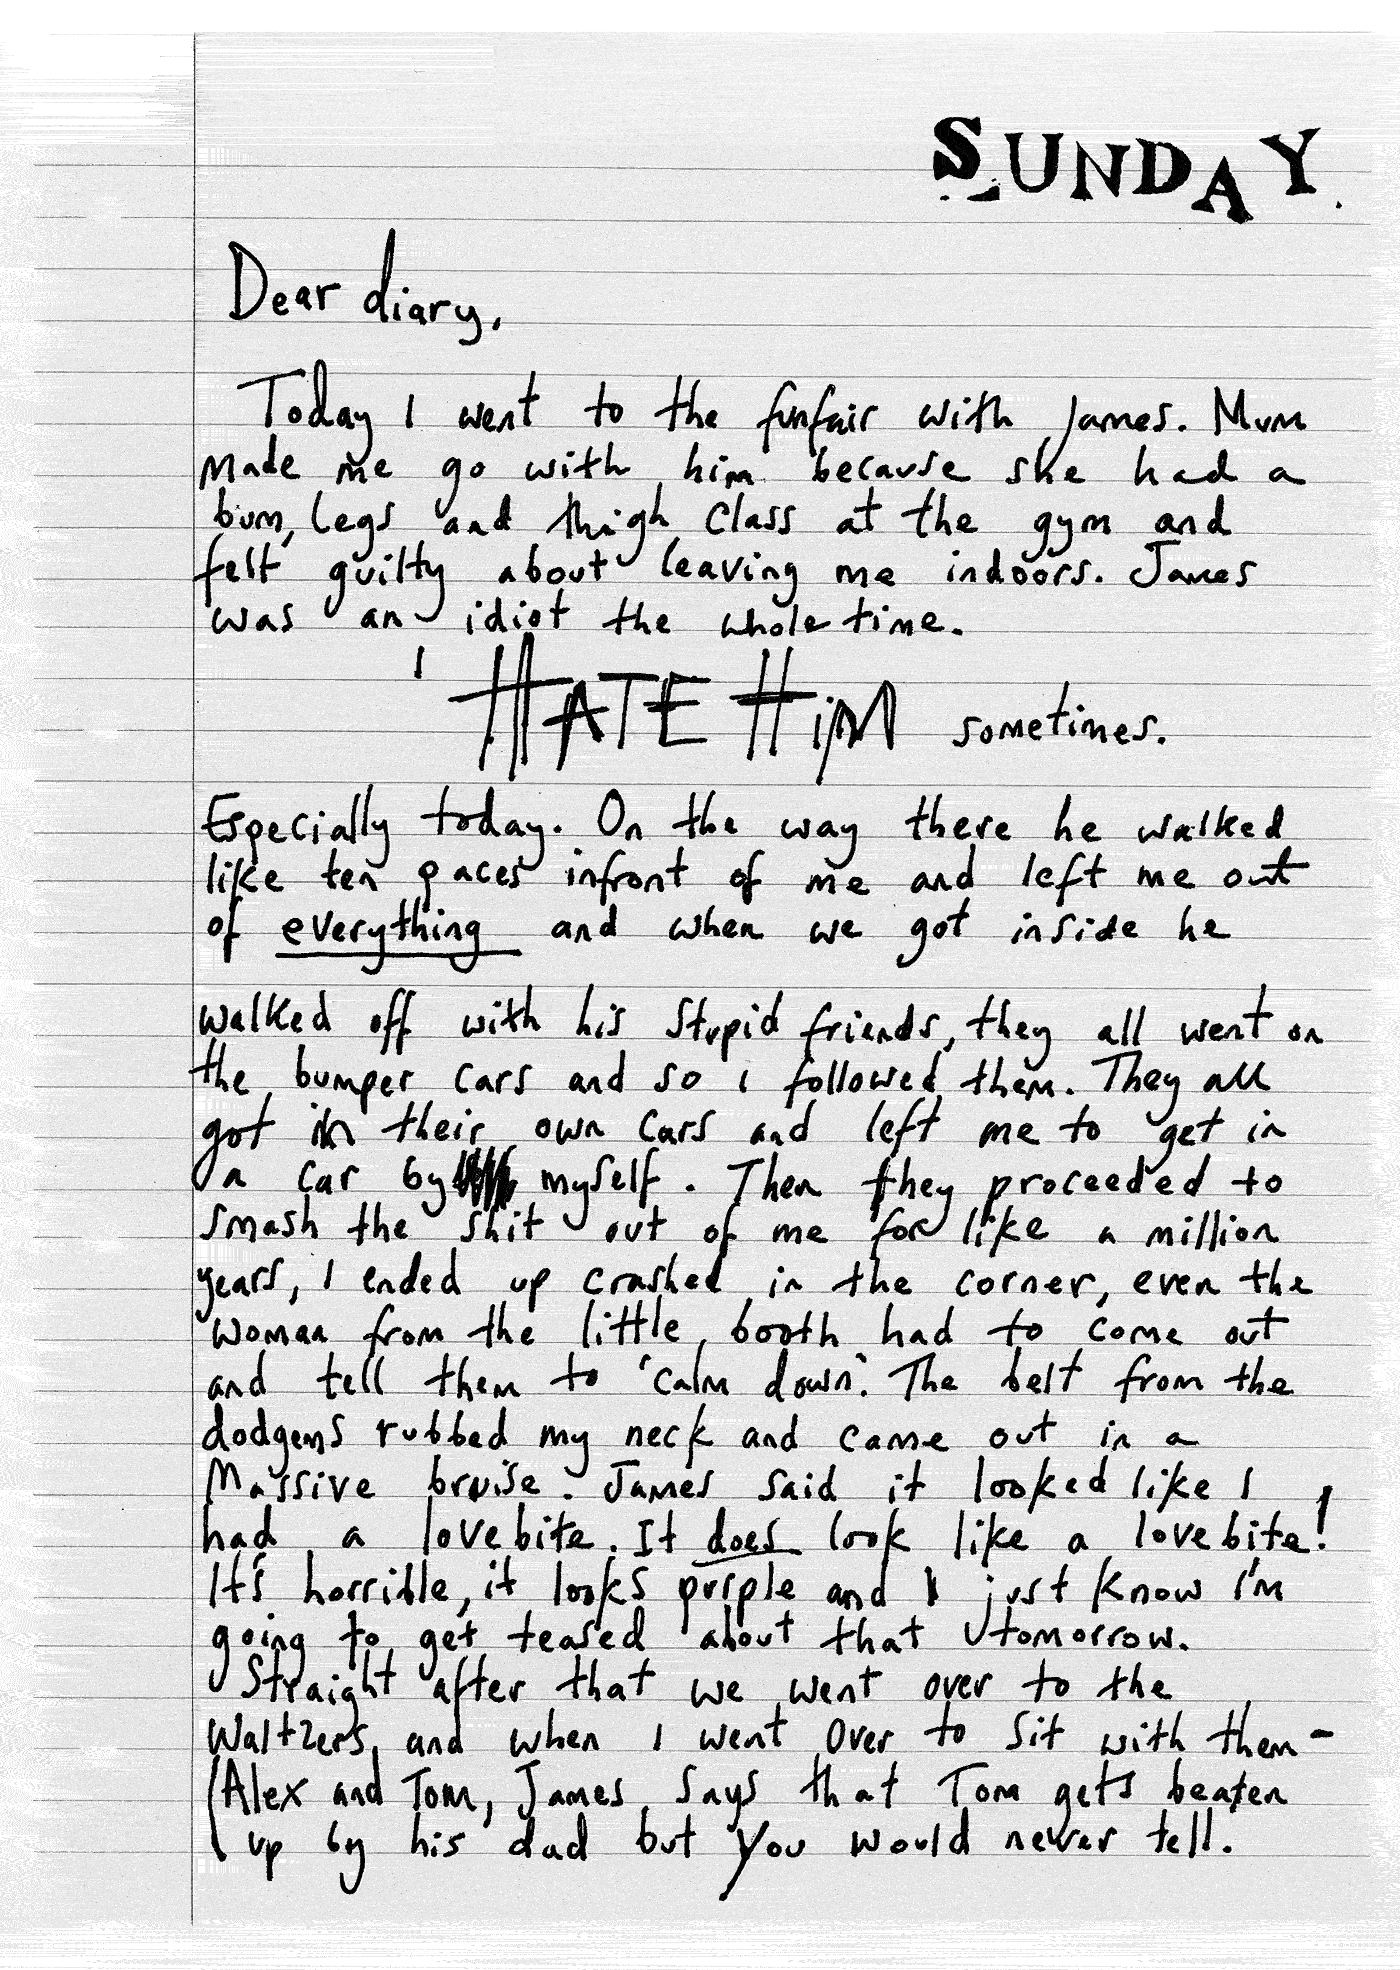 SUNDAY.
Dear diary,
Today I went to the funfair with James. Mum
made me go with him because she had a
bum, legs and thigh class at the gym and
felt guilty about leaving me indoors. James
was an idiot the whole time.
I HATE HiM sometimes.
Especially today. On the way there he walked
like ten paces infront of me and left me out
of everything and when we got inside he
walked off with his stupid friends, they all went on
the bumper cars and so i followed them. They all
got in their own cars and left me to get in
a car by myself. Then they proceeded to
smash the shit out of me for like a million
years, I ended up crashed in the corner, even the
woman from the little booth had to come out
and tell them to 'calm down'. The belt from the
dodgems rubbed my neck and came out in a
Massive bruise. James said it looked like I
had a lovebite. It does look like a lovebite!
It's horrible, it looks purple and I just know i'm
going to get teased about that tomorrow.
Straight after that we went over to the
Waltzers, and when I went over to sit with them -
(Alex and Tom, James says that Tom gets beaten
up by his dad but you would never tell.